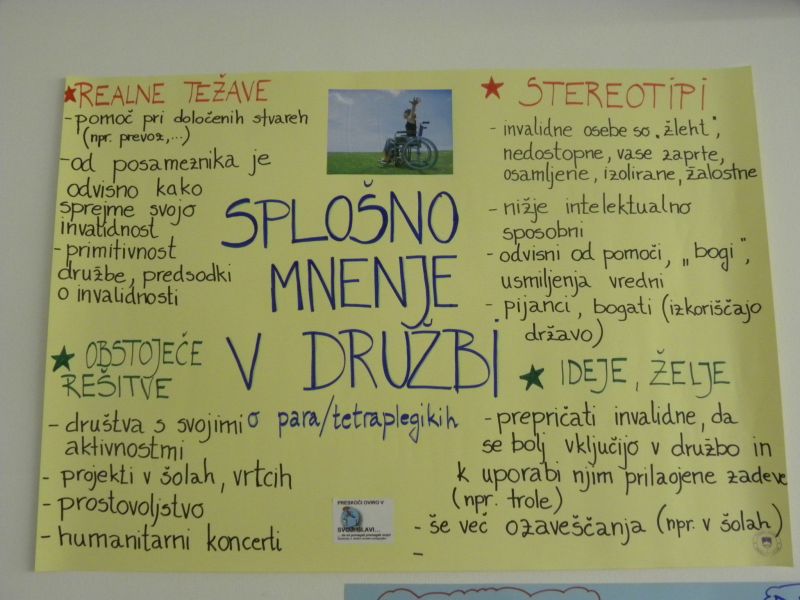 REALNE TEŽAVE
- pomoč pri določenih stvareh
(npr. prevoz,...)
- od posameznika je
odvisno kako
sprejme svojo
invalidnost
- primitivnost
družbe, predsodki
o invalidnosti
SPLOŠNO
MNENJE
V DRUŽBI
o para/tetraplegikih
STEREOTIPI
- invalidne osebe so "žleht",
nedostopne, vase zaprte,
osamljene, izolirane, žalostne
- nižje intelektualno
sposobni
- odvisni od pomoči, „bogi",
usmiljenja vredni
- pijanci, bogati (izkoriščajo
državo)
OBSTOJEČE
REŠITVE
- društva s svojimi
aktivnostmi
- projekti v šolah, vrtcih
- prostovoljstvo
- humanitarni koncerti
PRESKOČI OVIRO V
SVOJI GLAVI...
IDEJE, ŽELJE
- prepričati invalidne, da
se bolj vključijo v družbo in
k uporabi njim prilaojene zadeve
(npr. trole)
- še več ozaveščanja (npr. v šolah)
-